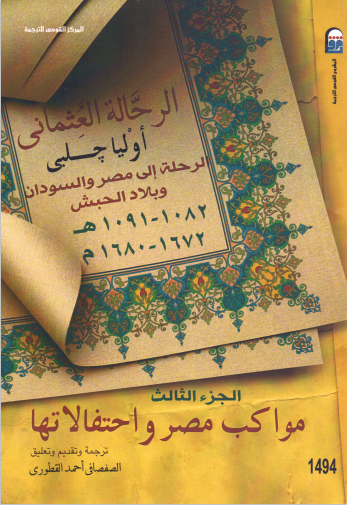 المركز القومى للترجمة
المشروع القومى للترجمة
الرحَّالة العِثمانى
أوْليا چـلـبى
الرحلة إلى مصر والسودان
وبلاد الحبش
١٠٨٢-١٠٩١ هـ
١٦٧٢-١٦٨٠ م
الجزء الثالث
مواكب مصر واحتفالاتها
ترجمة وتقديم وتعليق
الصفصافى أحمد القطورى
1494